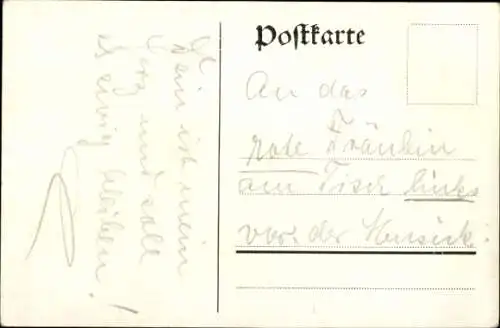 Postkarte
An das
rote Fräulein
am Tisch links
vor der Musick.
Dein ist mein
Herz und soll
es ewig bleiben!